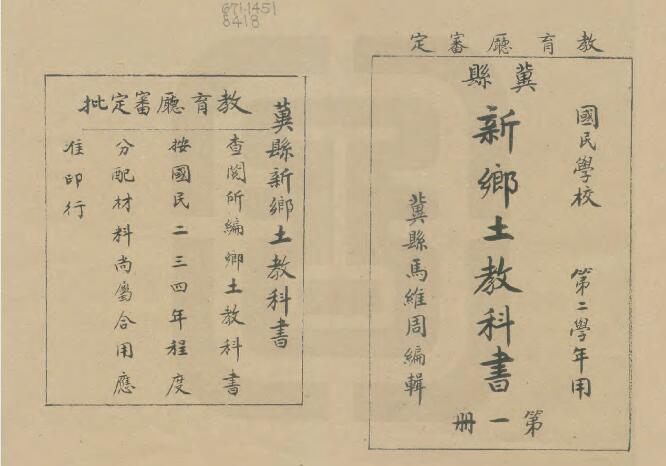 671.1451
8418
教育廳審定
冀縣
國民學校 第二學年用
新鄉土教科書
冀縣馬維周編輯
第一冊
冀縣新鄉土教科書
教育廳審定批
查閱所編鄉土教科書
按國民二三四年程度
分配材料尚屬合用應
准印行